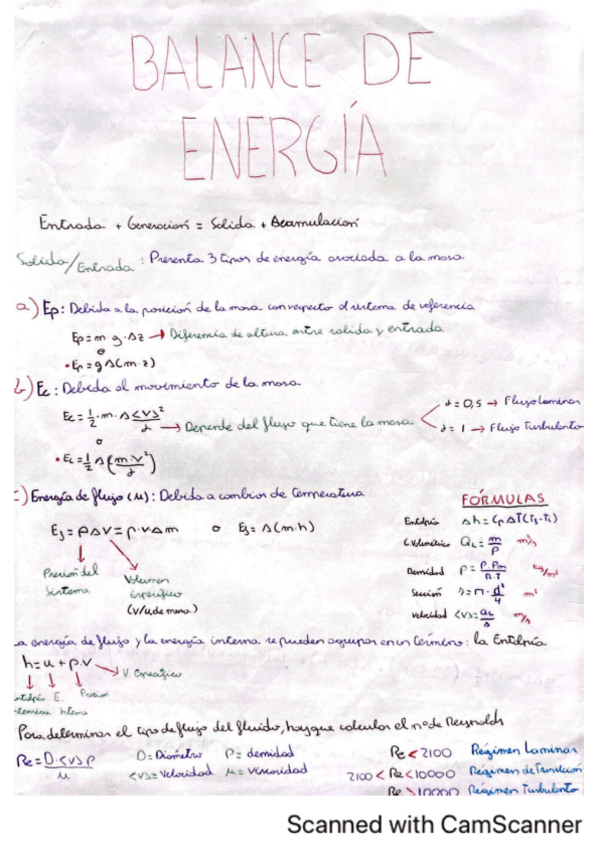 BALANCE DE
ENERGÍA
Entrada + Generación = Salida + Acumulación
Salida/Entrada : Presenta 3 tipos de energía asociada a la masa
a) Ep: Debida a la posición de la masa con respecto al sistema de referencia
Ep = m · g · Δz → Diferencia de altura entre salida y entrada
o
• Ep = g Δ(m · z)
b) Ec: Debida al movimiento de la masa
Ec = 1/2 · m · Δ <v>²/α → Depende del flujo que tiene la masa
α = 0,5 → Flujo Laminar
α = 1 → Flujo Turbulento
o
• Ec = 1/2 Δ(m · v²/α)
c) Energía de flujo (u): Debida a cambios de temperatura
Ef = P Δ V = P · v Δ m o Ef = Δ(m · h)
Presión del sistema
Volumen Específico (V/u. de masa)
FÓRMULAS
Entalpía Δh = Cp ΔT (Tf - Ti)
C. Volumétrico QL = m/ρ m³/s
Densidad ρ = P · Pm / R · T Kg/m³
Sección S = π · d²/4 m²
Velocidad <v> = QL/S m/s
La energía de flujo y la energía interna se pueden agrupar en un término: la Entalpía
h = u + P · v → V. Específico
Entalpía E. Presión
Interna
Para determinar el tipo de flujo del fluido, hay que calcular el nº de Reynolds
Re = D · <v> ρ / μ
D = Diámetro ρ = densidad
<v> = Velocidad μ = viscosidad
Re < 2100 Régimen Laminar
2100 < Re < 10000 Régimen de Transición
Re > 10000 Régimen Turbulento
Scanned with CamScanner